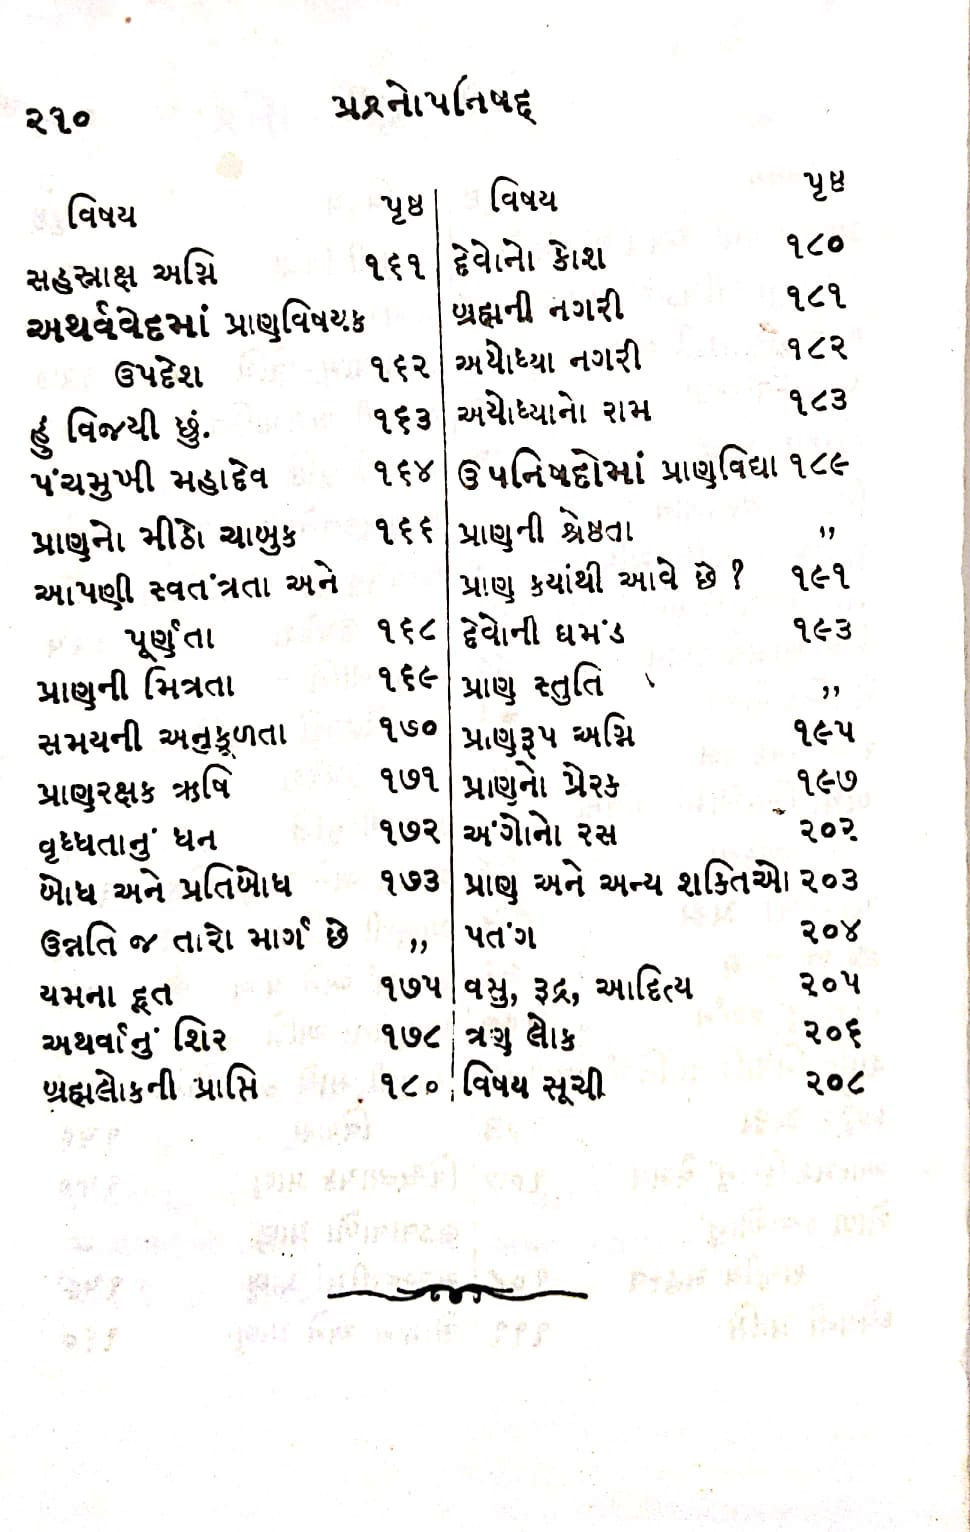 ૨૧૦
પ્રશ્નોપનિષદ્
વિષય પૃષ્ઠ
સહસ્રાક્ષ અગ્નિ ૧૬૧
અથર્વવેદમાં પ્રાણવિષયક
ઉપદેશ ૧૬૨
હું વિજયી છું. ૧૬૩
પંચમુખી મહાદેવ ૧૬૪
પ્રાણનો મીઠો ચાબુક ૧૬૬
આપણી સ્વતંત્રતા અને
પૂર્ણતા ૧૬૮
પ્રાણની મિત્રતા ૧૬૯
સમયની અનુકૂળતા ૧૭૦
પ્રાણરક્ષક ઋષિ ૧૭૧
વૃધ્ધતાનું ધન ૧૭૨
બોધ અને પ્રતિબોધ ૧૭૩
ઉન્નતિ જ તારો માર્ગ છે ,,
યમના દૂત ૧૭૫
અથર્વાનું શિર ૧૭૮
બ્રહ્મલોકની પ્રાપ્તિ ૧૮૦
વિષય પૃષ્ઠ
દેવોનો કોશ ૧૮૦
બ્રહ્મની નગરી ૧૮૧
અયોધ્યા નગરી ૧૮૨
અયોધ્યાનો રામ ૧૮૩
ઉપનિષદોમાં પ્રાણવિદ્યા ૧૮૯
પ્રાણની શ્રેષ્ઠતા ,,
પ્રાણ કયાંથી આવે છે ? ૧૯૧
દેવોની ઘમંડ ૧૯૩
પ્રાણ સ્તુતિ ,,
પ્રાણરૂપ અગ્નિ ૧૯૫
પ્રાણનો પ્રેરક ૧૯૭
અંગોનો રસ ૨૦૨
પ્રાણ અને અન્ય શક્તિઓ ૨૦૩
પતંગ ૨૦૪
વસુ, રૂદ્ર, આદિત્ય ૨૦૫
ત્રણ લોક ૨૦૬
વિષય સૂચી ૨૦૮